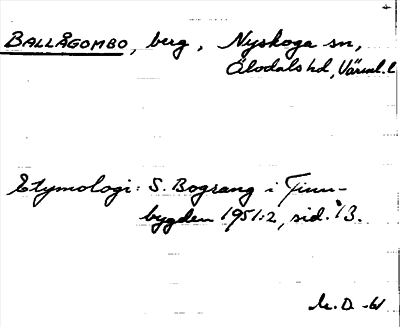 BALLÅGOMBO, berg, Nyskoga sn,
Älvdals hd, Värml. l.
Etymologi: S. Bograng i Finn-
bygden 1951:2, sid. 13.
M. D. -61